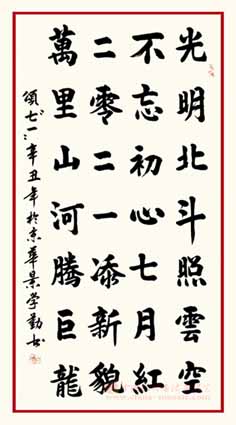 光明北斗照雲空
不忘初心七月紅
二零二一添新貌
萬里山河騰巨龍
頌“七一”辛丑年於京華景学勤书